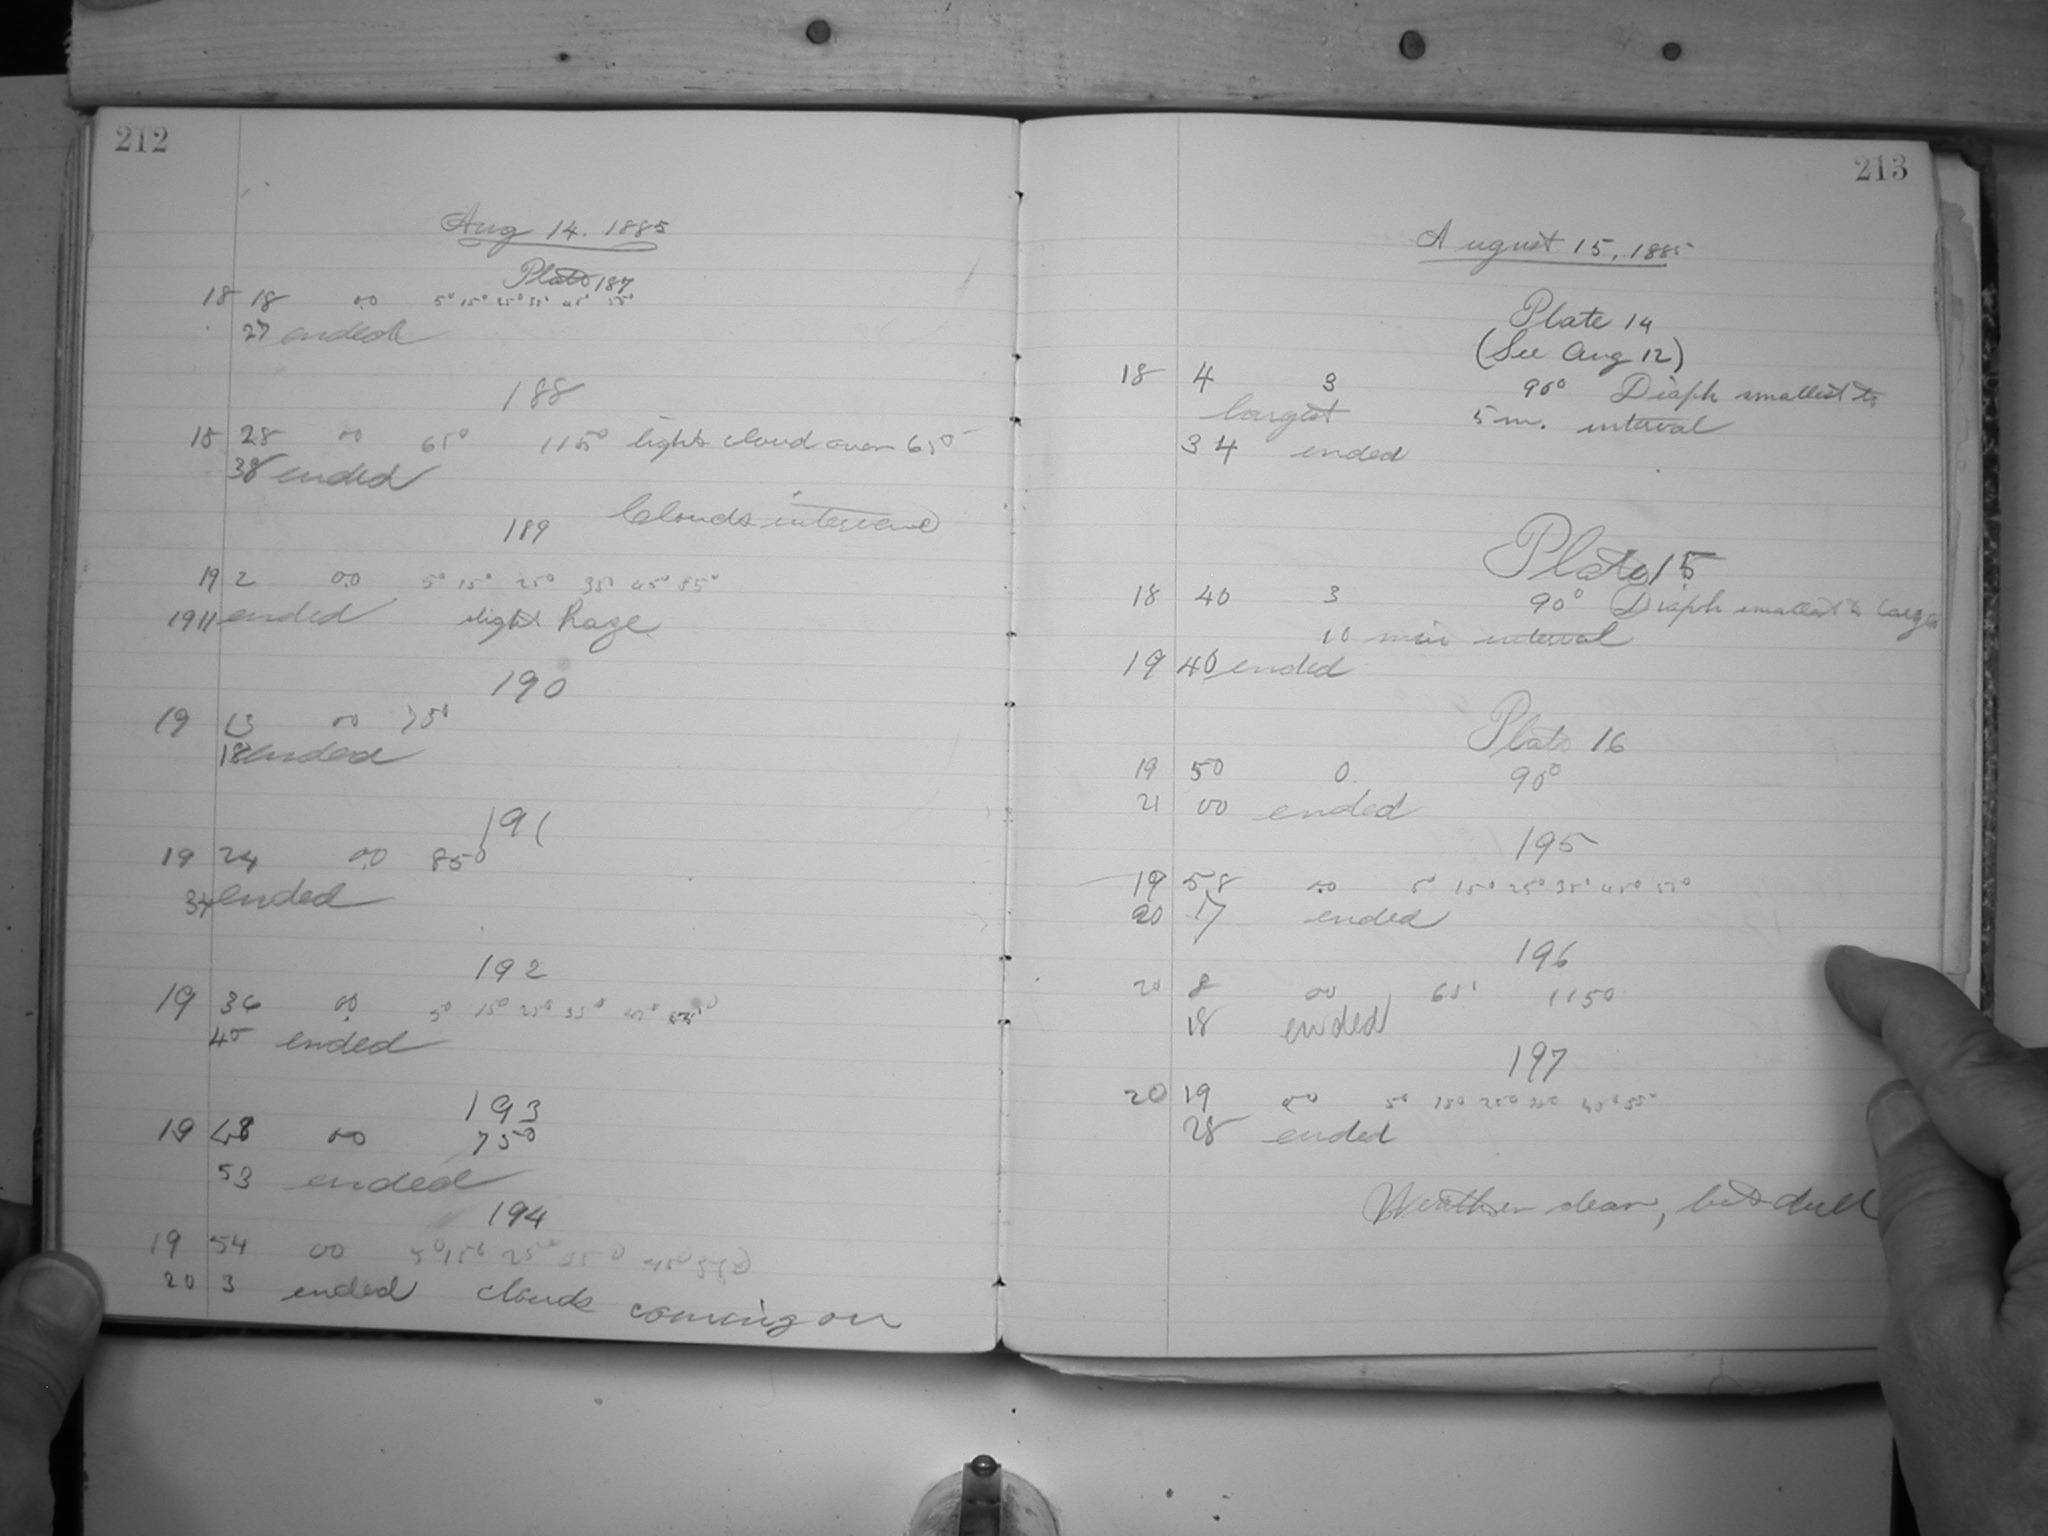 212
Aug 14. 1885
Plate 187
18 18 00 5° 15° 25° 35° 45° 55°
27 ended
188
18 28 00 65° 115° light cloud over 65°
38 ended
Clouds intervene
189
19 2 00 5° 15° 25° 35° 45° 55°
19 11 ended slight haze
190
19 13 00 75°
18 ended
191
19 24 00 85°
34 ended
192
19 36 00 5° 15° 25° 35° 45° 55°
45 ended
193
19 48 00 75°
53 ended
194
19 54 00 5° 15° 25° 35° 45° 55°
20 3 ended clouds coming on
213
August 15, 1885
Plate 14
(See Aug 12)
18 4 3 90° Diaph smallest to
largest 5 m. interval
34 ended
Plate 15
18 40 3 90° Diaph smallest to large
10 min interval
19 40 ended
Plate 16
19 50 0 90°
21 00 ended
195
19 58 00 5° 15° 25° 35° 45° 55°
20 17 ended
196
20 8 00 65° 115°
18 ended
197
20 19 00 5° 15° 25° 35° 45° 55°
28 ended
Weather clear, but dull